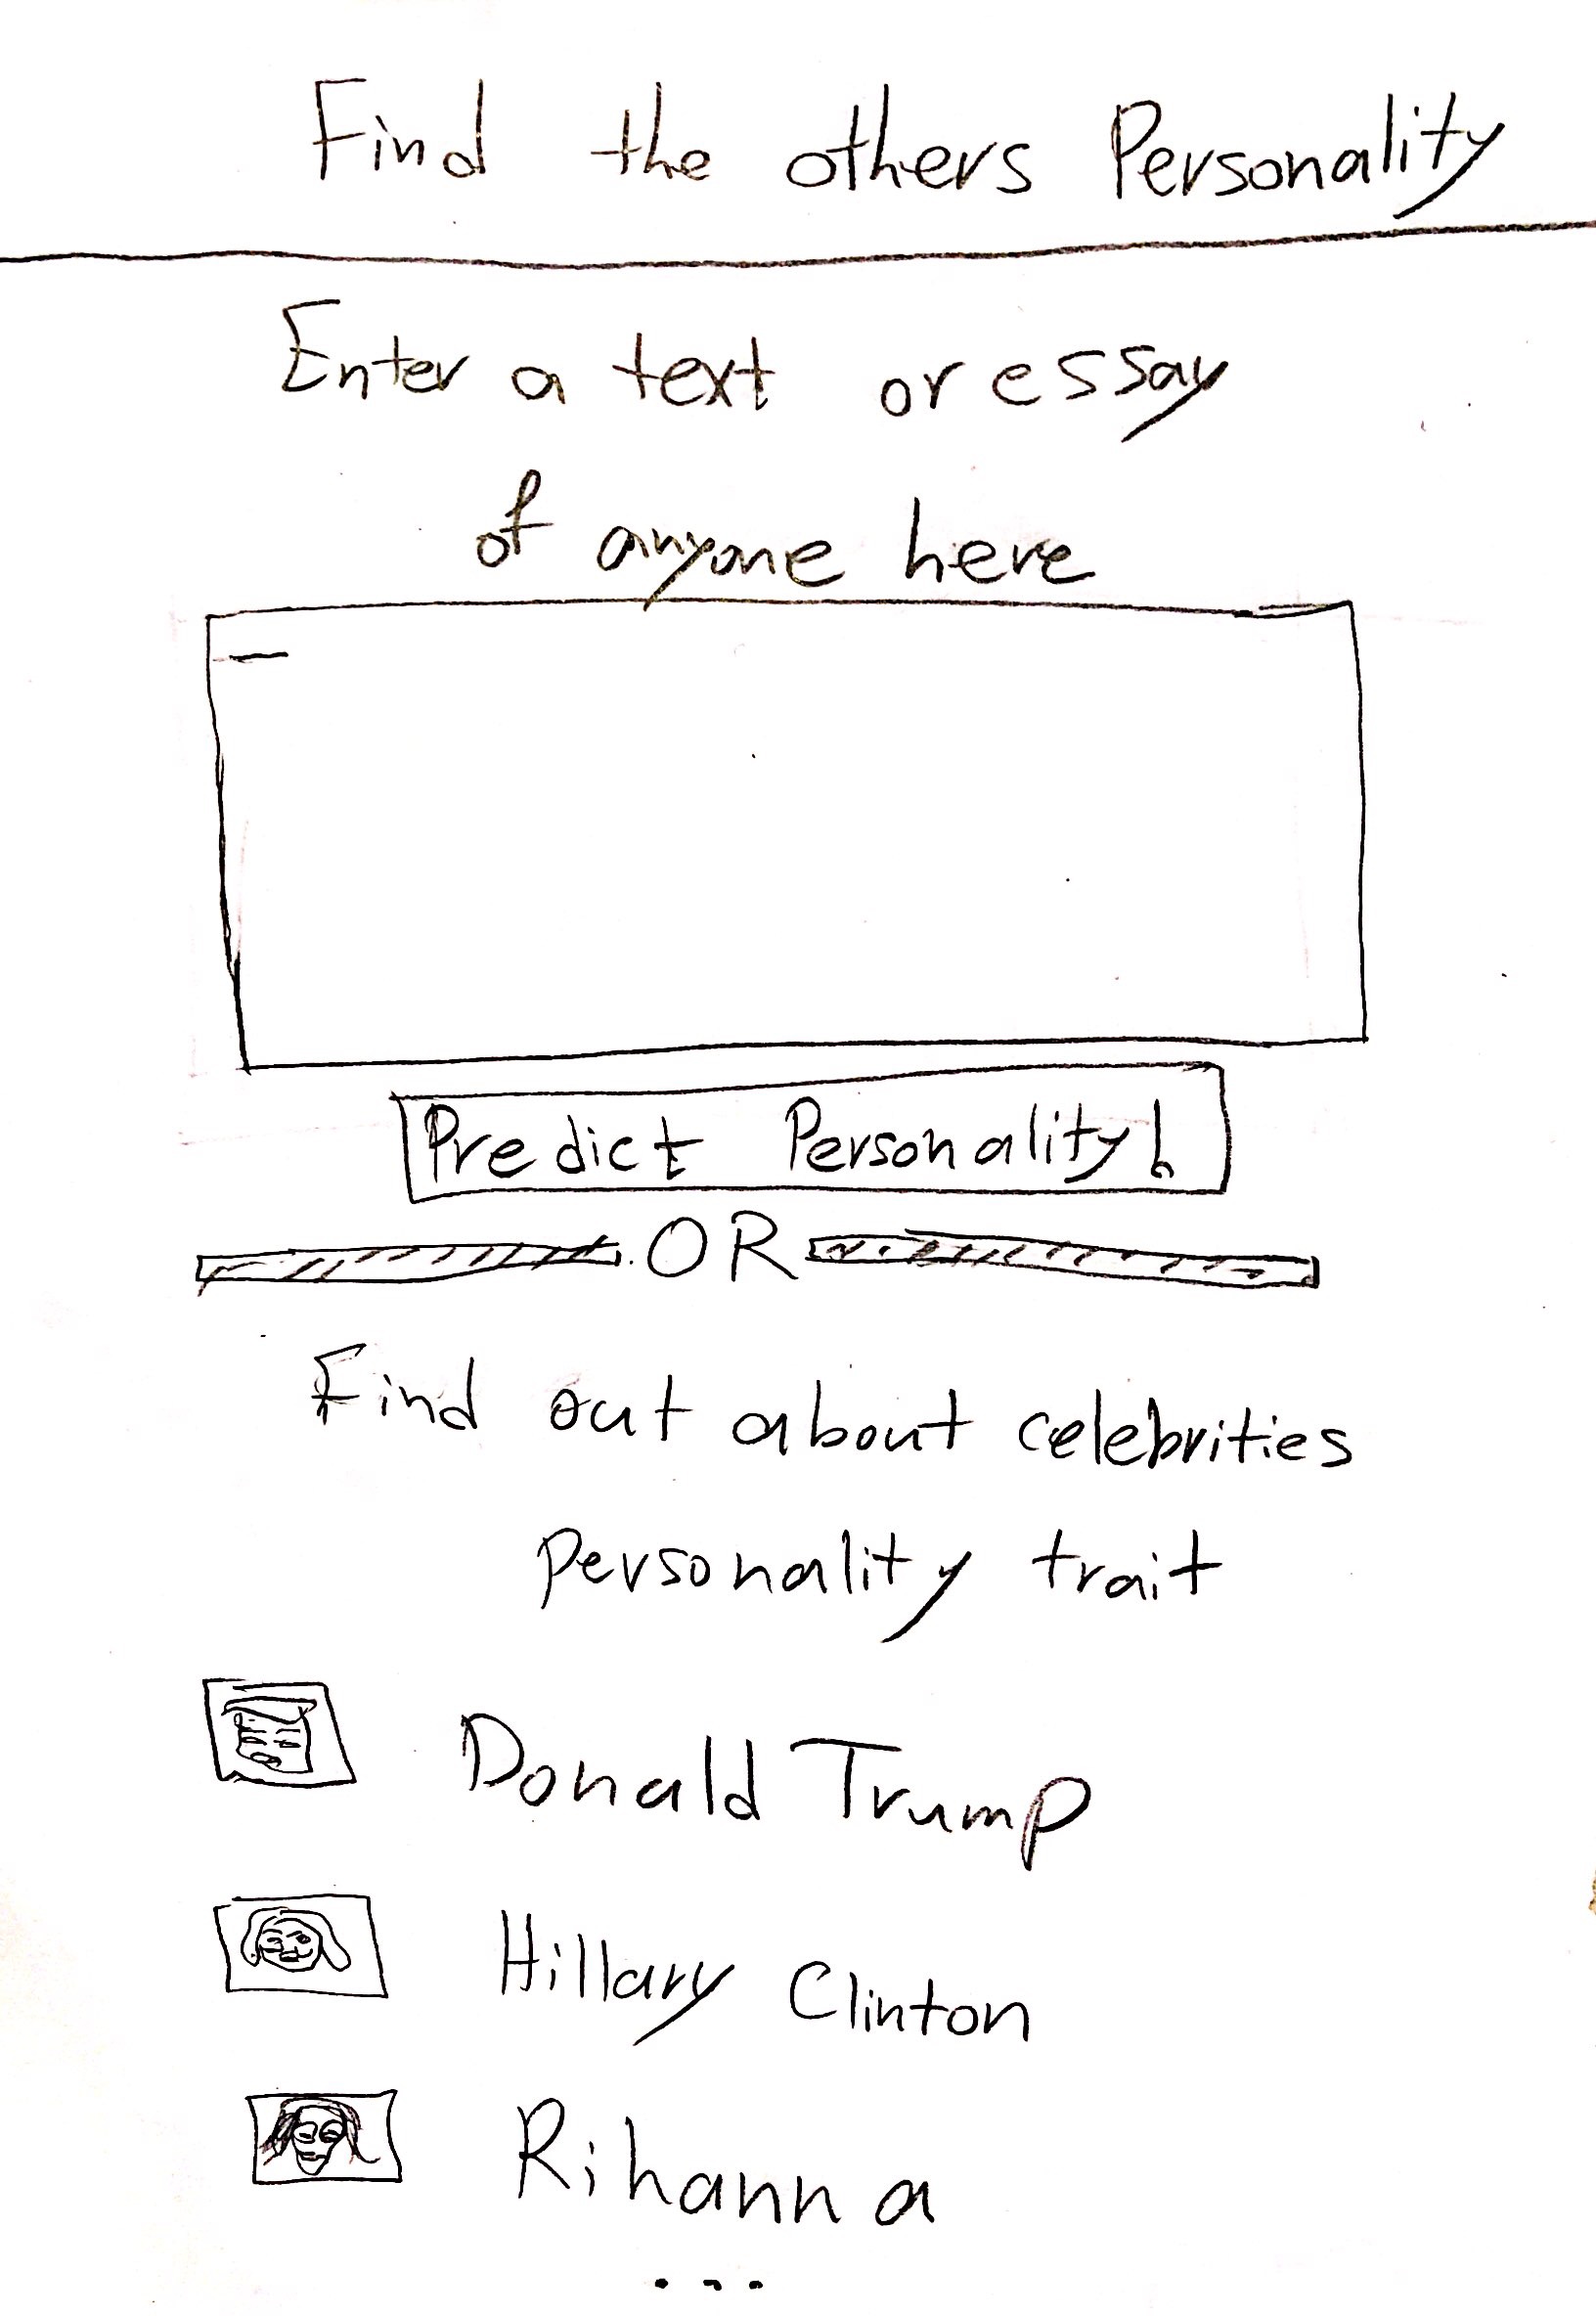 Find the others Personality
Enter a text or essay
of anyone here
Predict Personality!
OR
Find out about celebrities
personality trait
Donald Trump
Hillary Clinton
Rihanna
...